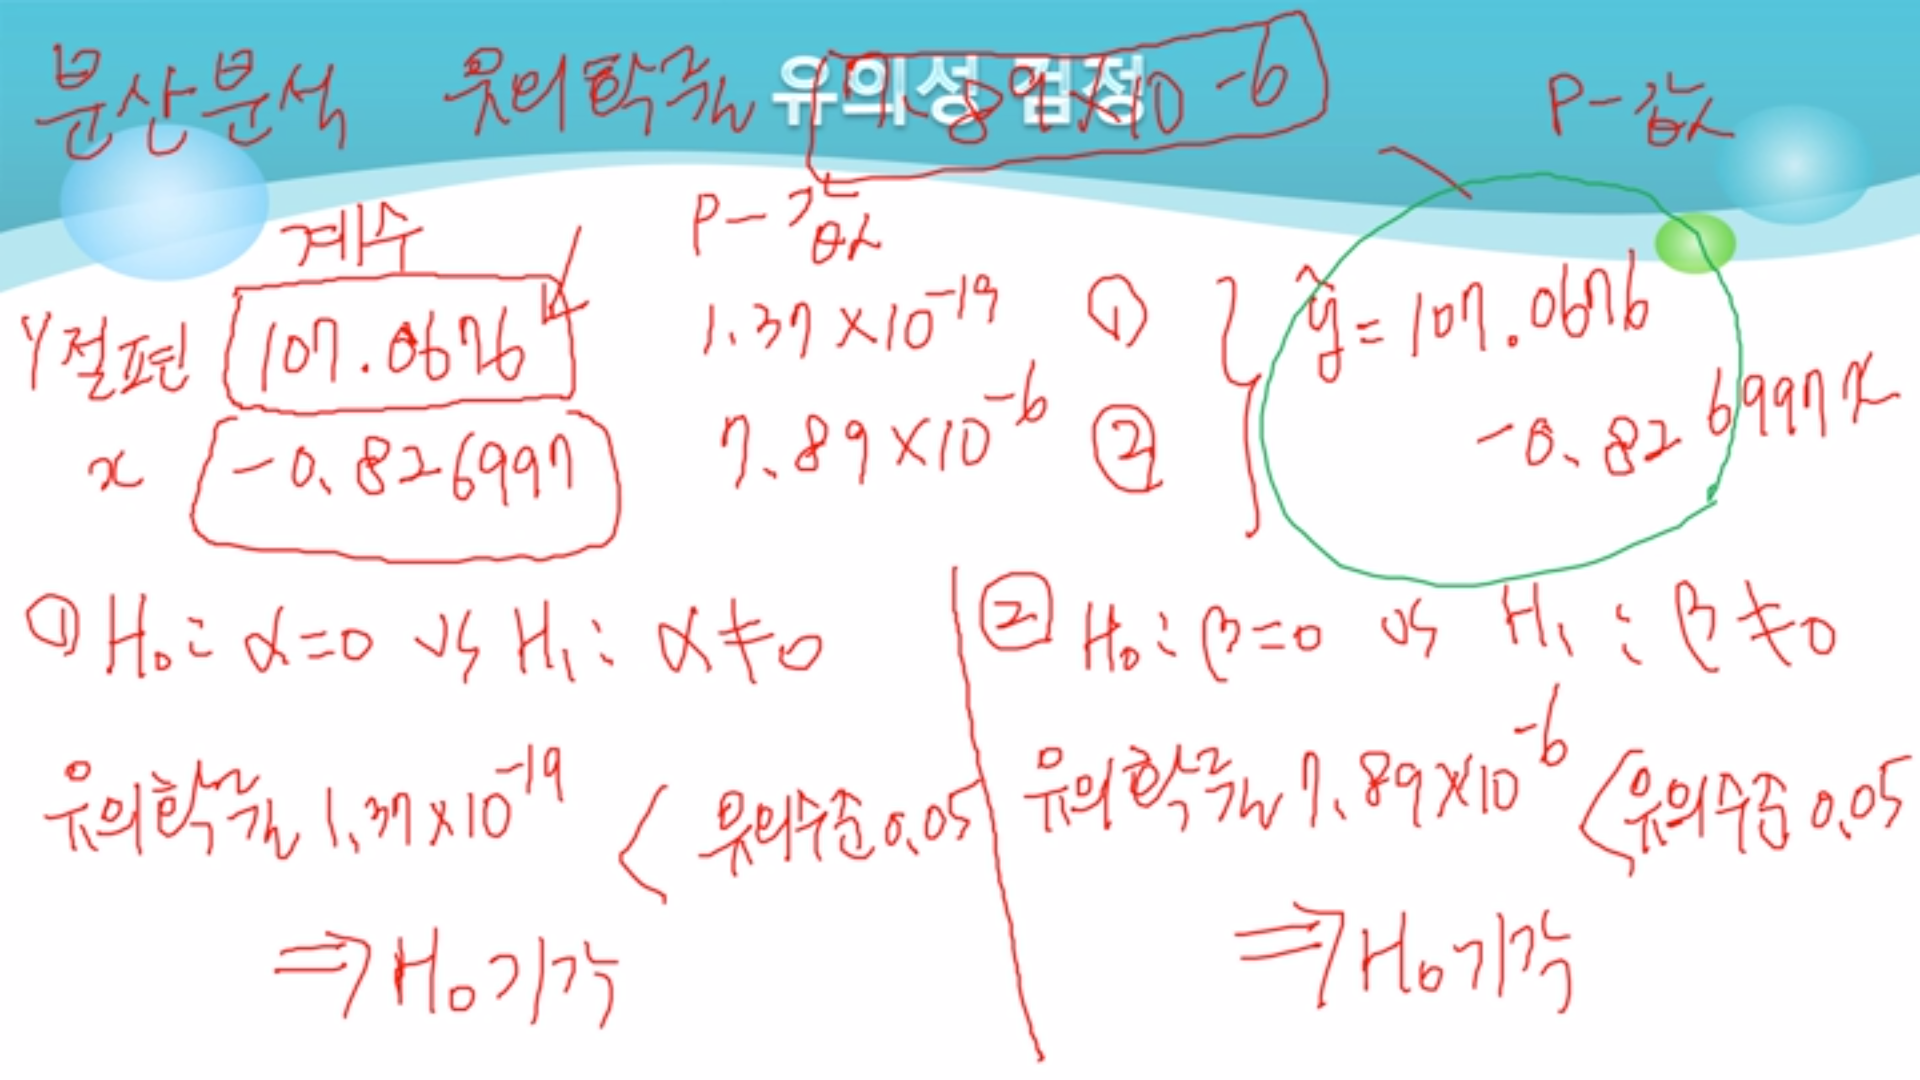 유의성 검정
분산분석 유의확률 7.89×10⁻⁶ P-값
계수 P-값
Y절편 107.0676 1.37×10⁻¹⁹ ① ŷ=107.0676
x -0.826997 7.89×10⁻⁶ ② -0.826997x
① H₀: α=0 vs H₁: α≠0
유의확률 1.37×10⁻¹⁹ < 유의수준 0.05
⇒ H₀ 기각
② H₀: β=0 vs H₁: β≠0
유의확률 7.89×10⁻⁶ < 유의수준 0.05
⇒ H₀ 기각